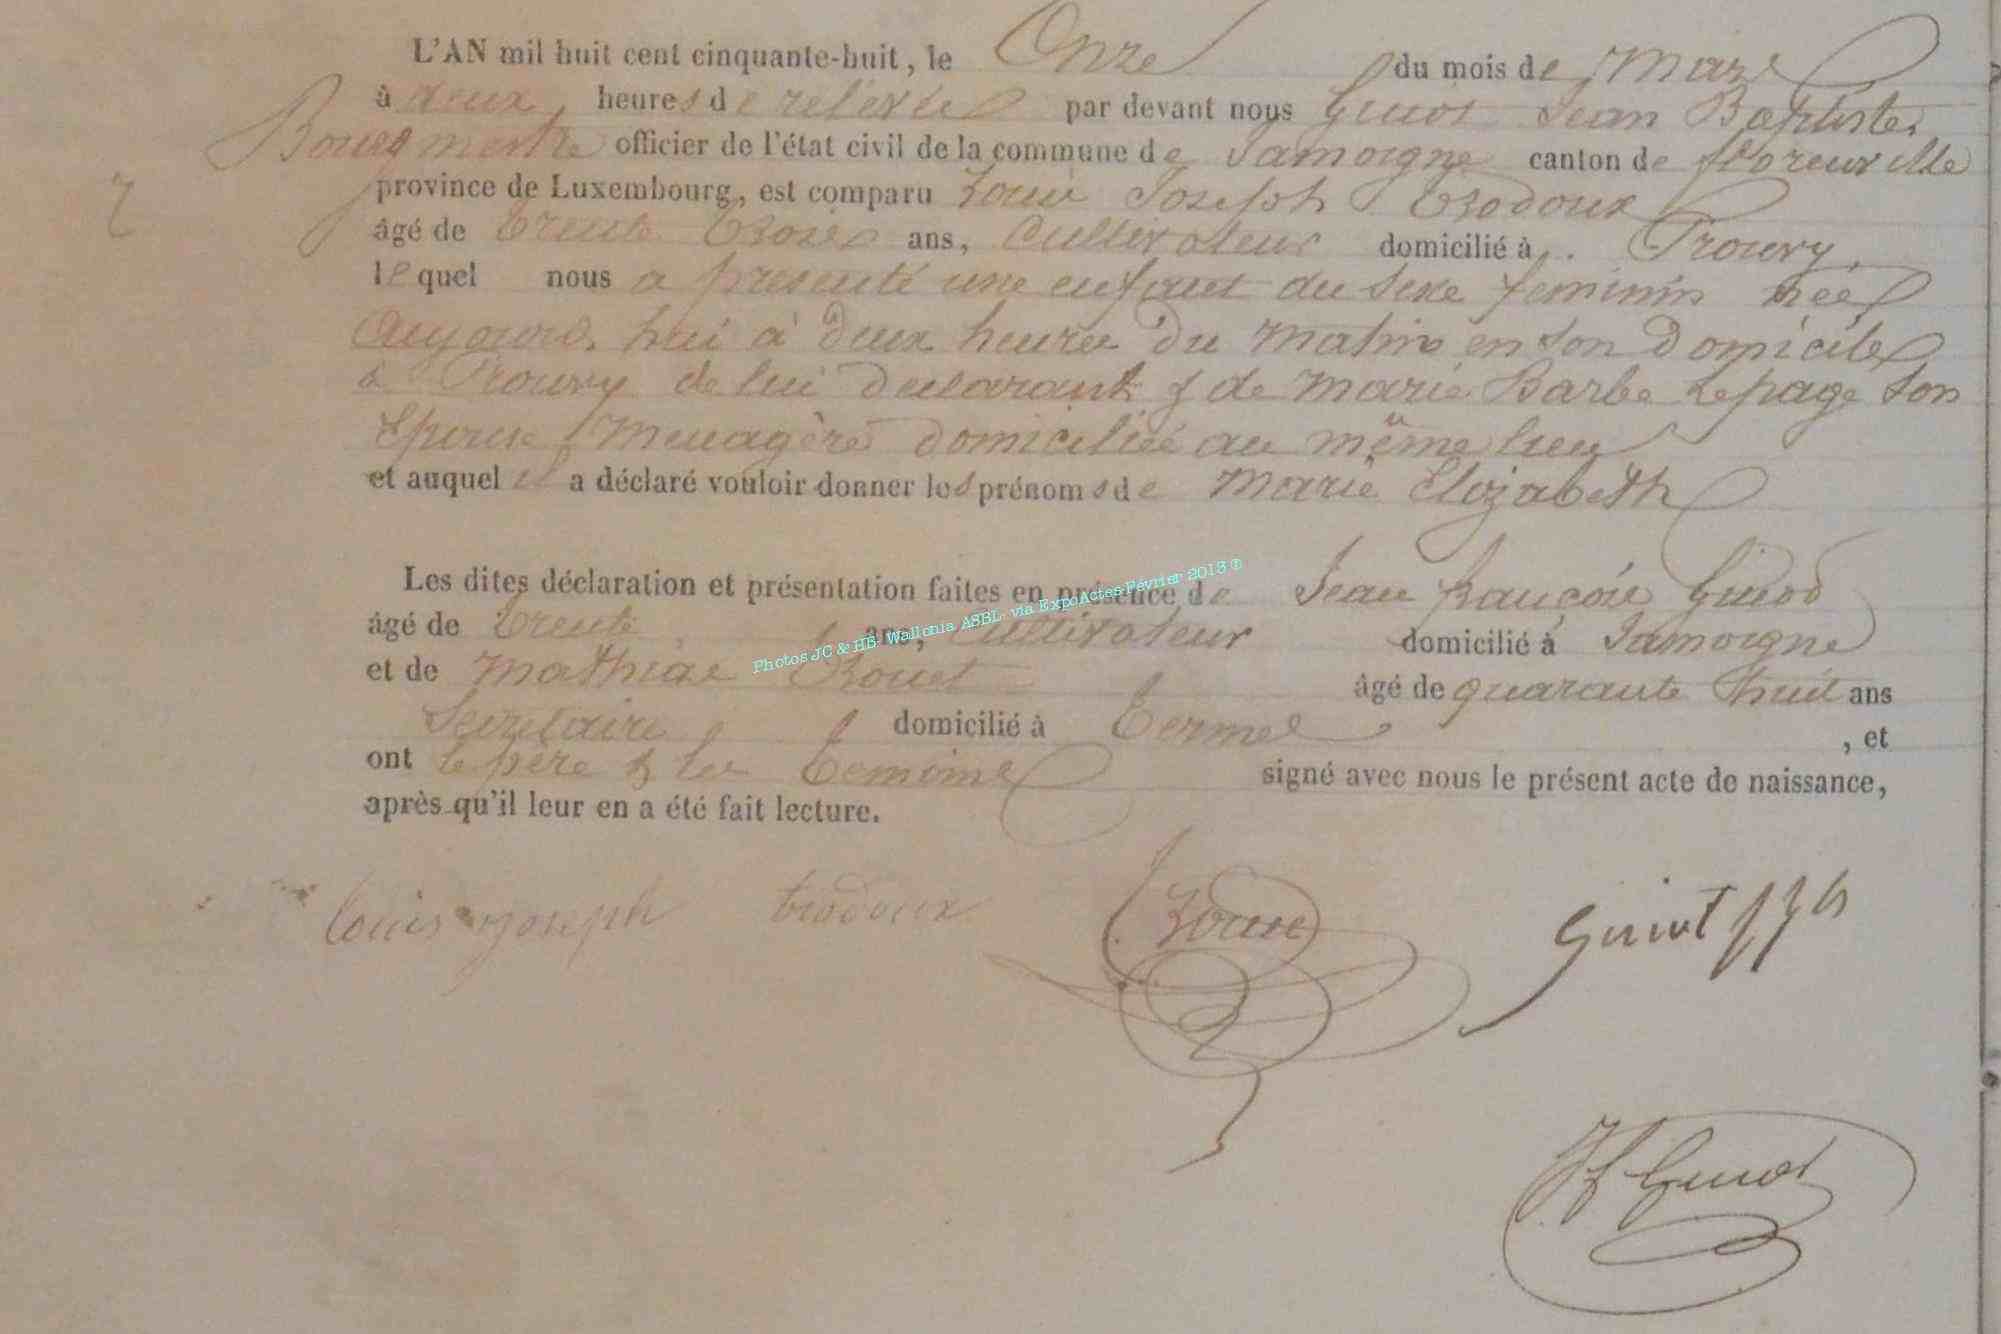 L'AN mil huit cent cinquante-huit, le Onze du mois de Mars
à deux heures de relevée par devant nous Guiot Jean Baptiste
Bourgmestre officier de l'état civil de la commune de Jamoigne canton de florenville
province de Luxembourg, est comparu Louis Joseph Trodoux
âgé de Trente Trois ans, Cultivateur domicilié à Prouvy
lequel nous a presenté une enfant du sexe feminin née
Aujourd'hui à deux heures du matin en son domicile
à Prouvy de lui declarant & de Marie Barbe Lepage son
Epouse Menagère domiciliée au même lieu
et auquel il a déclaré vouloir donner les prénoms de Marie Elizabeth
Les dites déclaration et présentation faites en présence de Jean françois Guiod
âgé de Trente ans, Cultivateur domicilié à Jamoigne
et de Mathias Rouet âgé de quarante huit ans
Secretaire domicilié à Termes , et
ont le père & les Temoins signé avec nous le présent acte de naissance,
après qu'il leur en a été fait lecture.
Photos JC & HB- Wallonia ASBL- via ExpoActes-Février 2013 ©
louis joseph trodoux
Guiot
Guiot